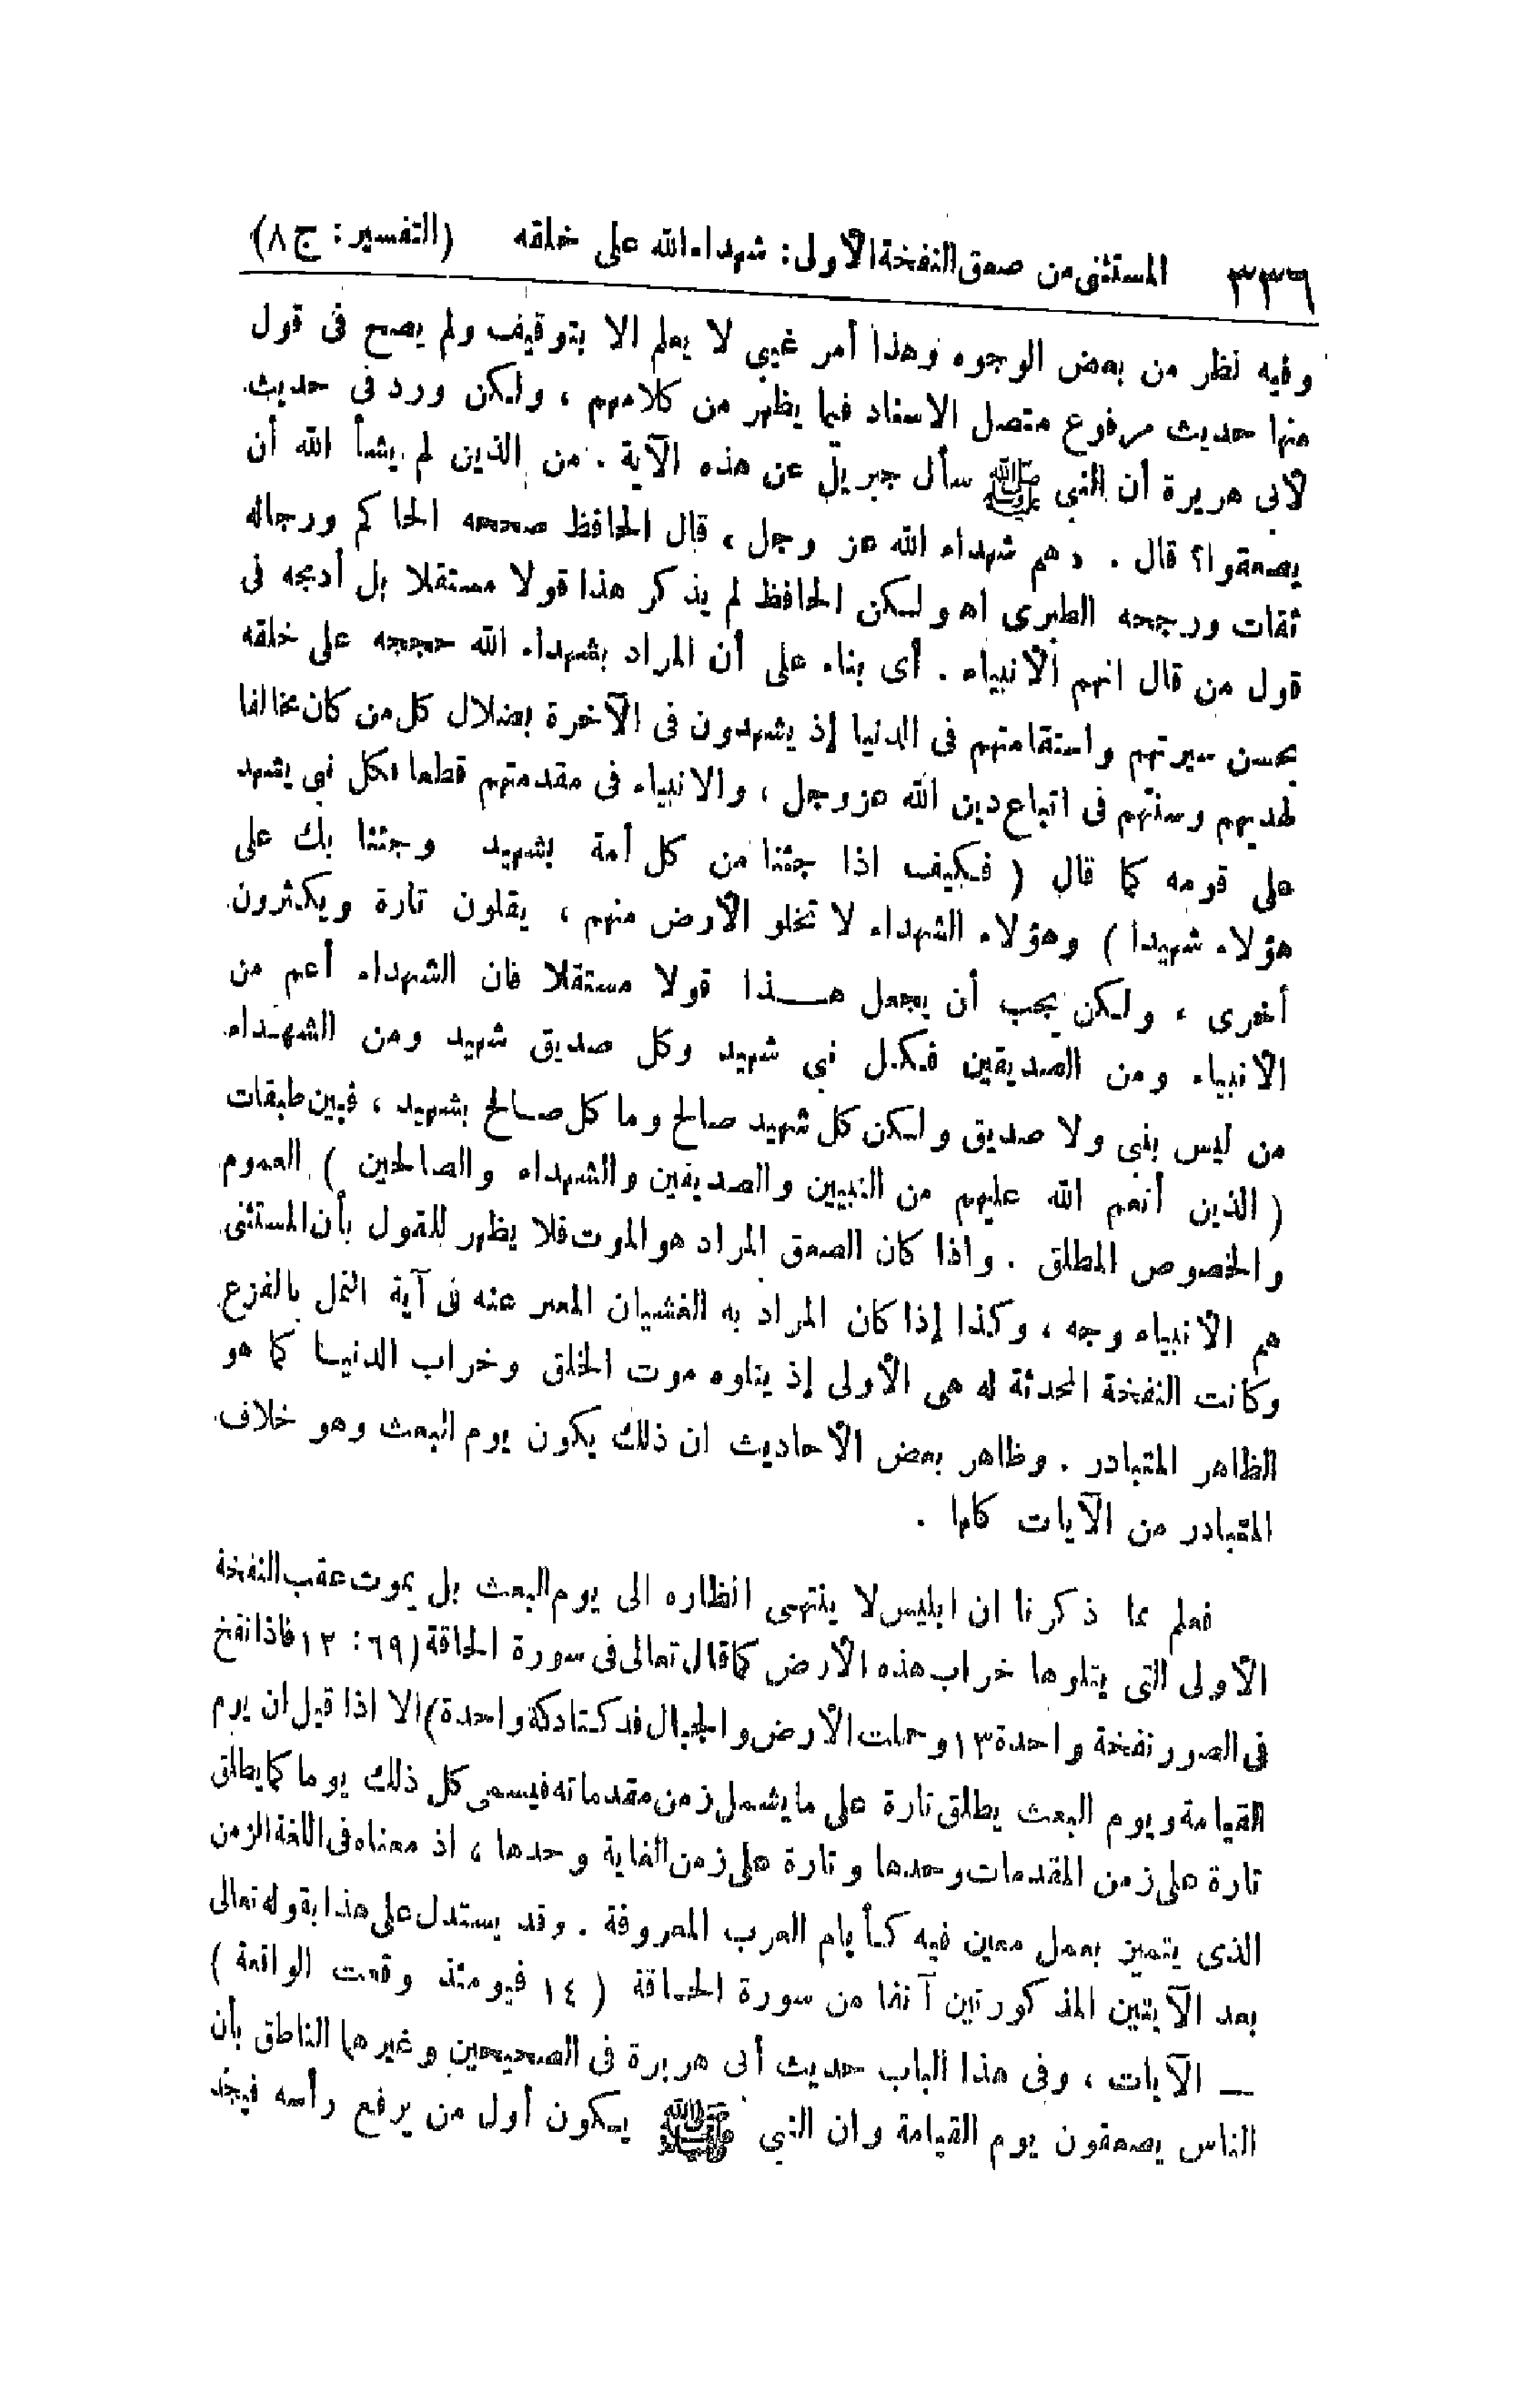 ٣٣٦ المستثنى من صعق النفخة الأولى: شهداء الله على خلقه (التفسير: ج ٨)
وفيه نظر من بعض الوجوه وهذا أمر غيبي لا يعلم الا بتوقيف ولم يصح فى قول
منها حديث مرفوع متصل الاسناد فيما يظهر من كلامهم ، ولكن ورد فى حديث
لأبى هريرة أن النبي ﷺ سأل جبريل عن هذه الآية . من الذين لم يشأ الله أن
يصعقوا؟ قال . «هم شهداء الله عز وجل ، قال الحافظ صححه الحاكم ورجاله
ثقات ورجحه الطبرى اه ولكن الحافظ لم يذكر هذا قولا مستقلا بل أدمجه فى
قول من قال انهم الأنبياء . أى بناء على أن المراد بشهداء الله حججه على خلقه
بحسن سيرتهم واستقامتهم فى الدنيا إذ يشهدون فى الآخرة بضلال كل من كان مخالفا
لهديهم وسنتهم فى اتباع دين الله عز وجل ، والانبياء فى مقدمتهم قطعا فكل نبي يشهد
على قومه كما قال ( فكيف اذا جئنا من كل أمة بشهيد وجئنا بك على
هؤلاء شهيدا ) وهؤلاء الشهداء لا تخلو الأرض منهم ، يقلون تارة ويكثرون
أخرى ، ولكن يجب أن يجعل هـذا قولا مستقلا فان الشهداء أعم من
الانبياء ومن الصديقين فكل نبي شهيد وكل صديق شهيد ومن الشهداء
من ليس بنبى ولا صديق ولكن كل شهيد صالح وما كل صالح بشهيد ، فبين طبقات
( الذين أنعم الله عليهم من النبيين والصديقين والشهداء والصالحين ) العموم
والخصوص المطلق . واذا كان الصعق المراد هو الموت فلا يظهر للقول بأن المستثنى
هم الانبياء وجه ، وكذا إذا كان المراد به الغشيان المعبر عنه فى آية النمل بالفزع
وكانت النفخة المحدثة له هى الأولى إذ يتلوه موت الخلق وخراب الدنيا كما هو
الظاهر المتبادر . وظاهر بعض الأحاديث ان ذلك يكون يوم البعث وهو خلاف
المتبادر من الآيات كلها .
فعلم مما ذكرنا ان ابليس لا ينتهى انظاره الى يوم البعث بل يموت عقب النفخة
الأولى التى يتلوها خراب هذه الأرض كما قال تعالى فى سورة الحاقة (٦٩ : ١٢ فاذا نفخ
فى الصور نفخة واحدة ١٣ وحملت الأرض والجبال فدكتا دكة واحدة) الا اذا قيل ان يوم
القيامة ويوم البعث يطلق تارة على ما يشمل زمن مقدماته فيسمى كل ذلك يوما كما يطلق
تارة على زمن المقدمات وحدها وتارة على زمن الغاية وحدها ، اذ معناه فى اللغة الزمن
الذى يتميز بعمل معين فيه كأيام العرب المعروفة . وقد يستدل على هذا بقوله تعالى
بعد الآيتين المذكورتين آنفا من سورة الحاقة ( ١٤ فيومئذ وقعت الواقعة )
ــ الآيات ، وفى هذا الباب حديث أبى هريرة فى الصحيحين وغيرهما الناطق بأن
الناس يصعقون يوم القيامة وان النبي ﷺ يكون أول من يرفع رأسه فيجد